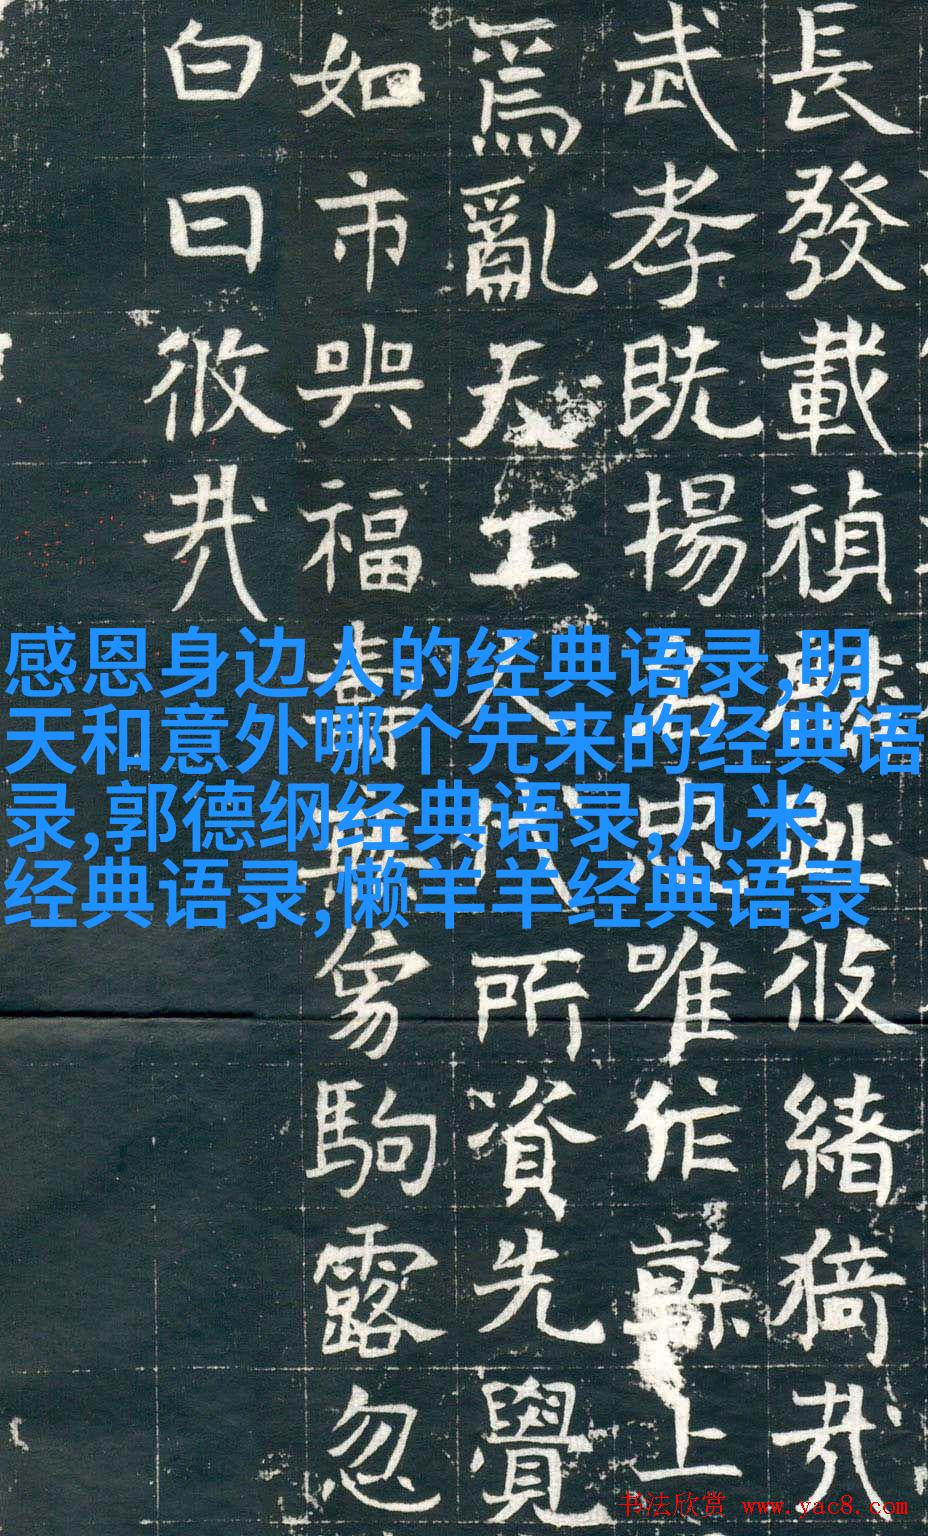 長發載禎彼緒猗哉
武孝旣揚名忠唯作幹上
爲亂天工人代所資先覺
如市與福壽無象駒露忽
白日攸哉
感恩身边人的经典语录,明
天和意外哪个先来的经典语
录,郭德纲经典语录,几米
经典语录,懒羊羊经典语录
书法欣赏 www.yac8.com